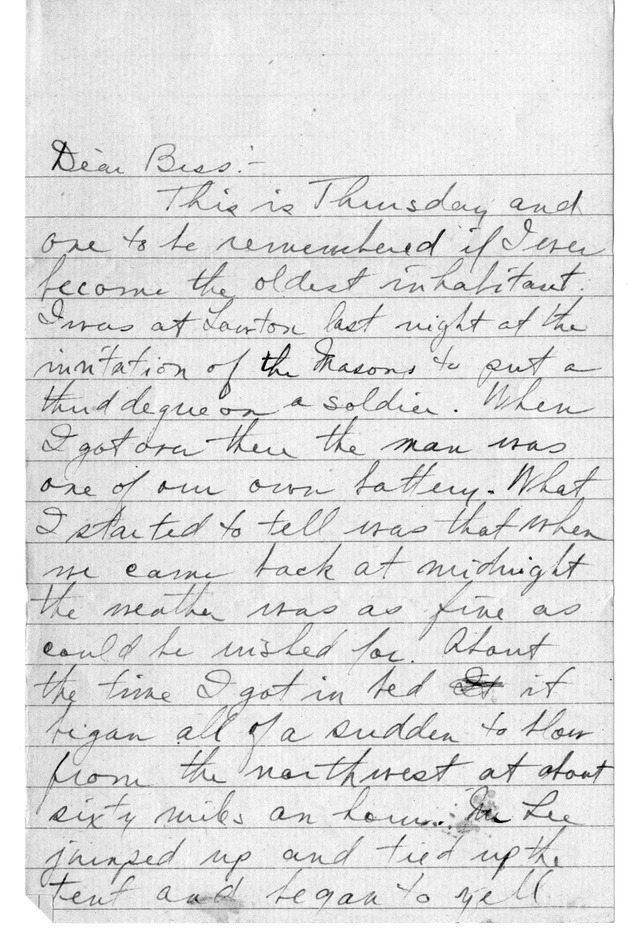 Dear Bess:-
This is Thursday and
one to be remembered if I ever
become the oldest inhabitant.
I was at Lawton last night at the
invitation of the Masons to put a
third degree on a soldier. When
I got over there the man was
one of our own battery. What
I started to tell was that when
we came back at midnight
the weather was as fine as
could be wished for. About
the time I got in bed it
began all of a sudden to blow
from the northwest at about
sixty miles an hour. Mr Lee
jumped up and tied up the
tent and began to yell